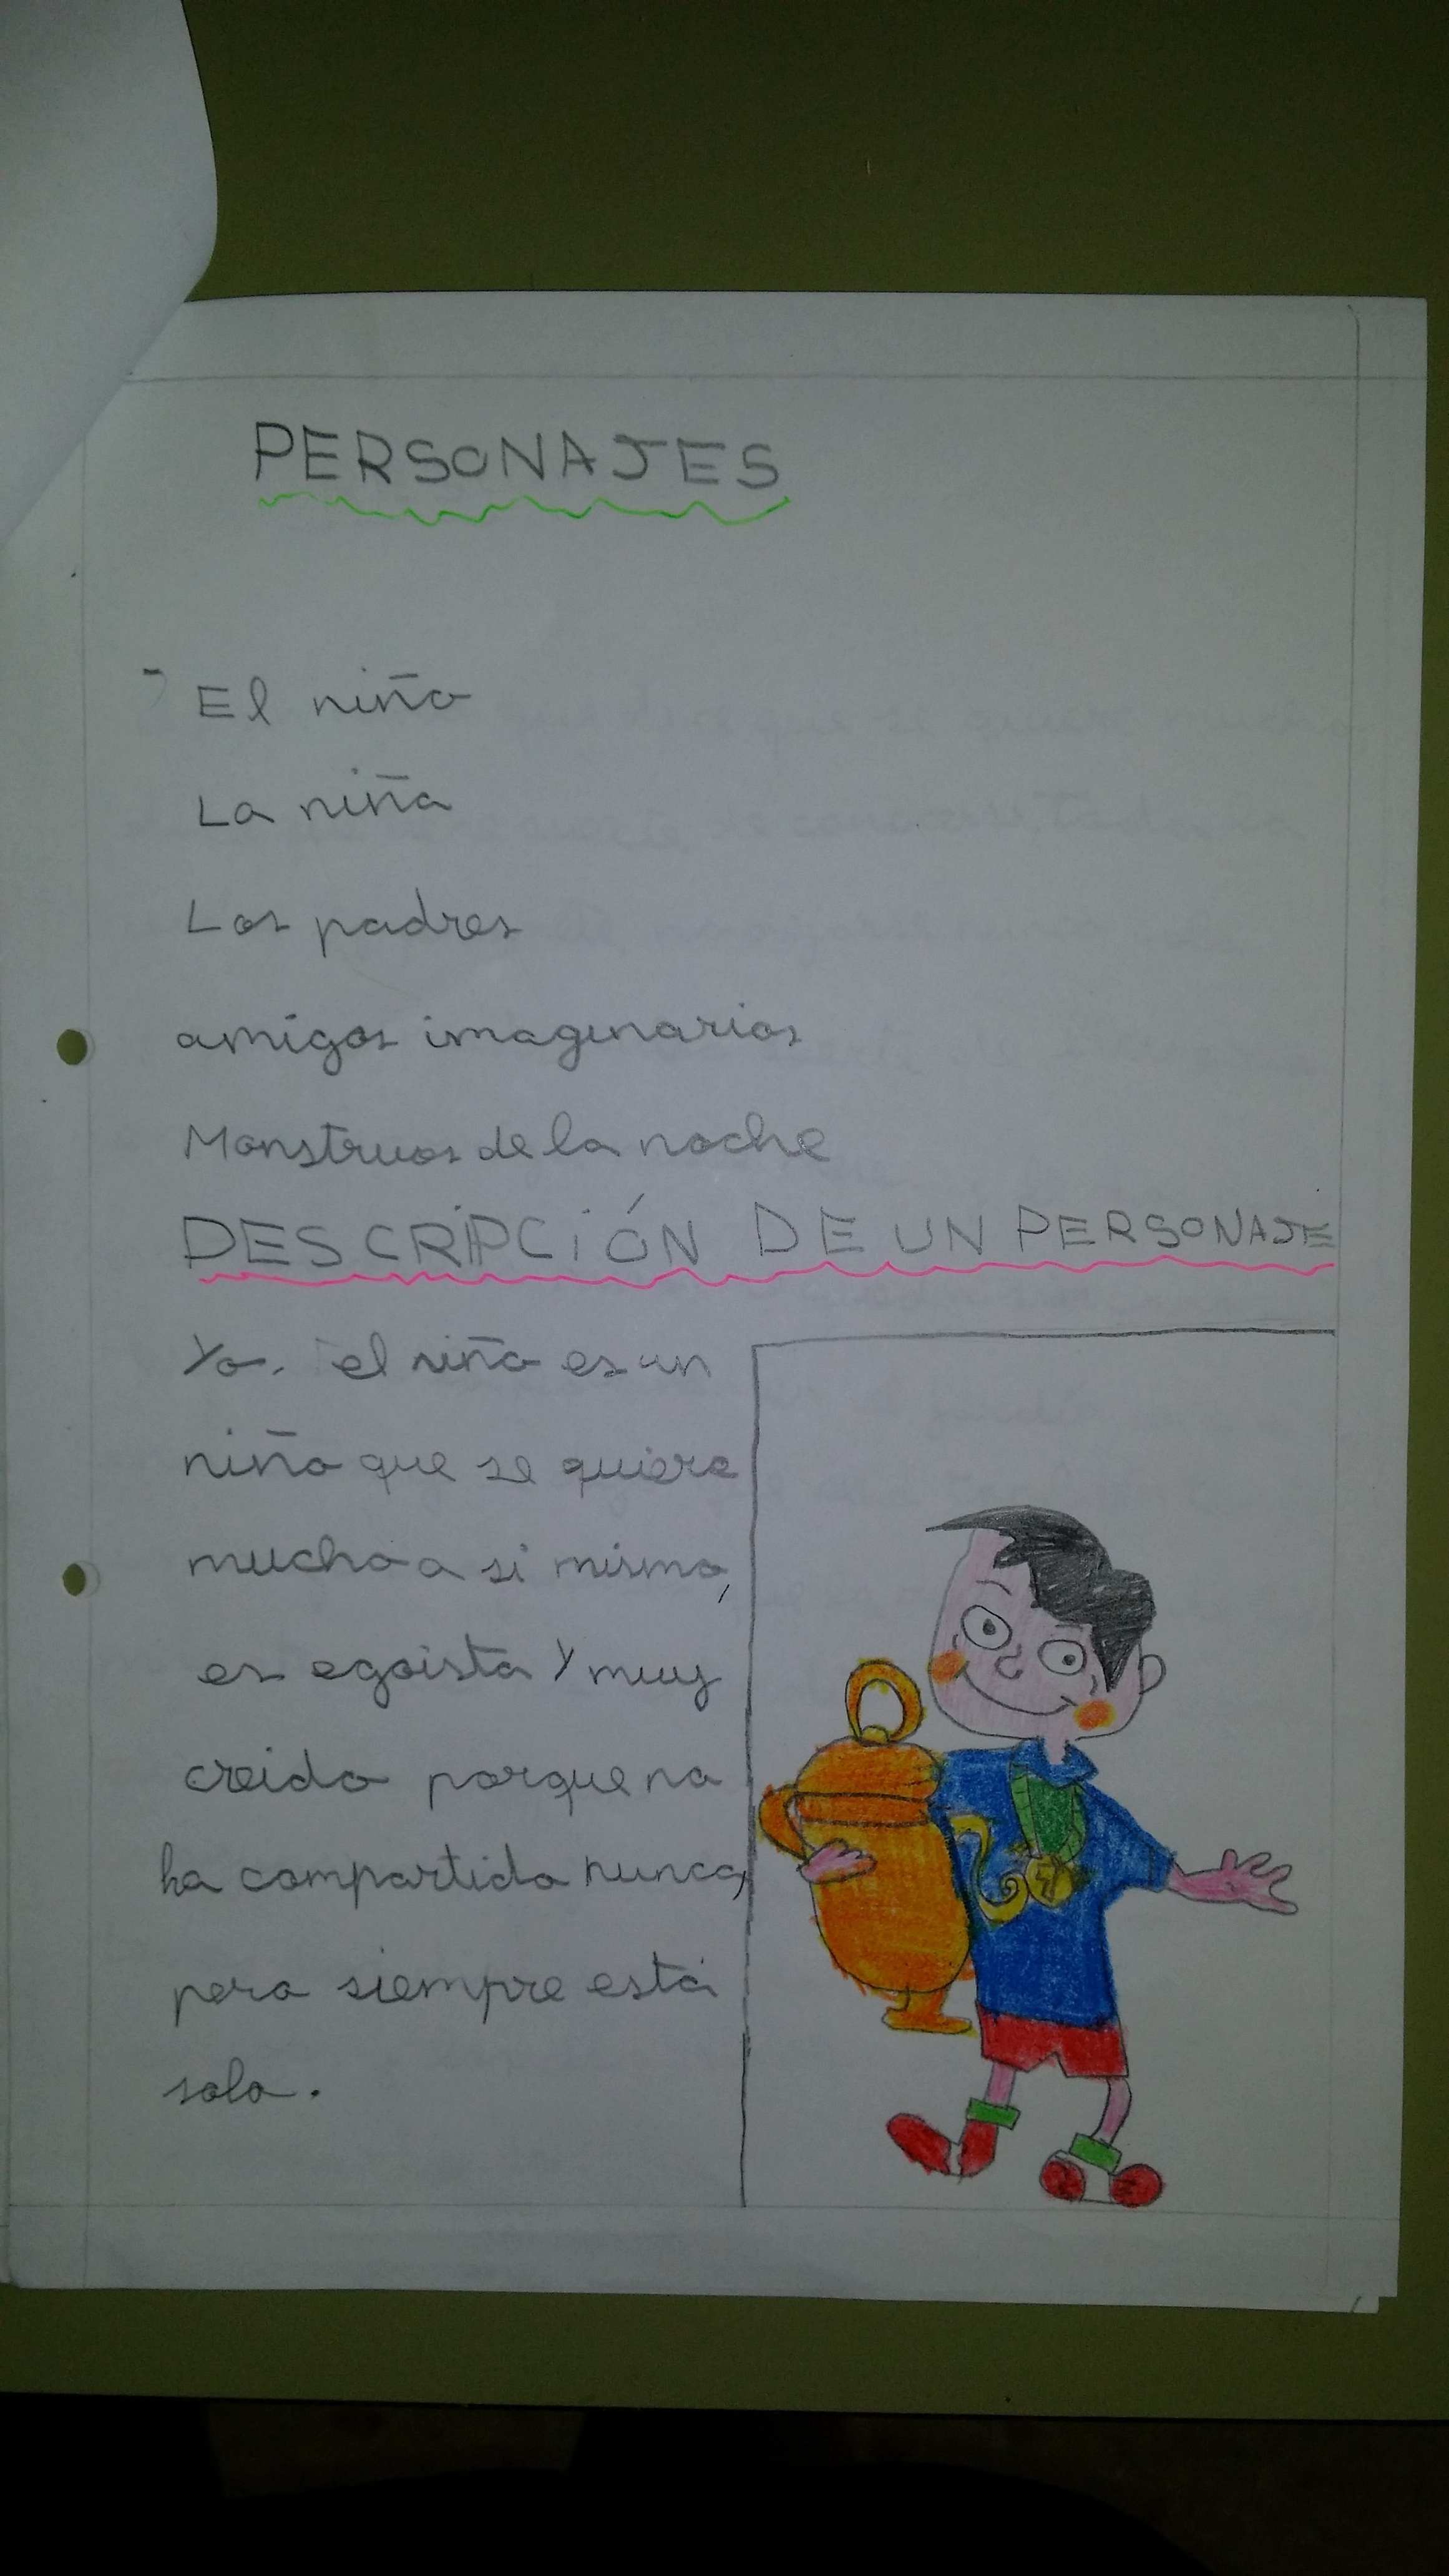 PERSONAJES
- El niño
La niña
Los padres
amigos imaginarios
Monstruos de la noche
DESCRIPCIÓN DE UN PERSONAJE
Yo. el niño es un
niño que se quiere
mucho a si mismo,
es egoista y muy
creido porque no
ha compartido nunca,
pero siempre está
solo.